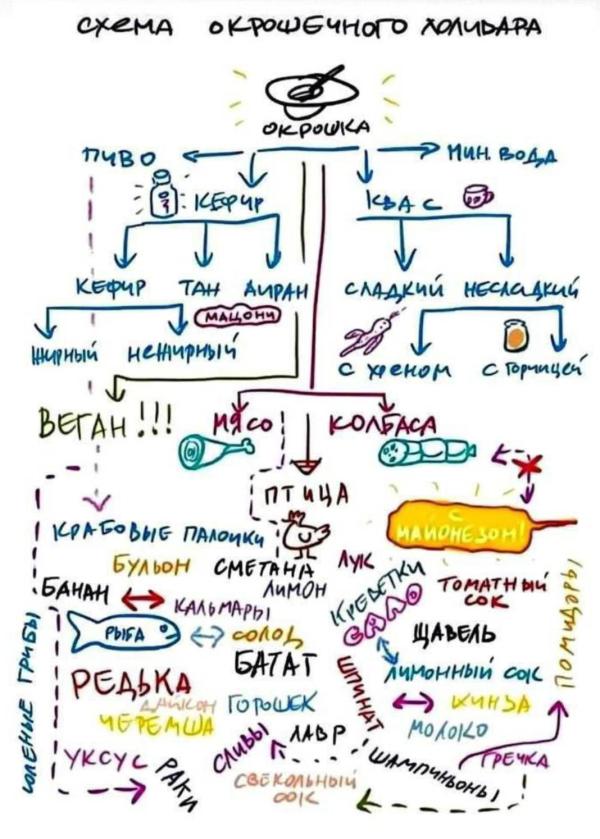 СХЕМА ОКРОШЕЧНОГО ХОЛИВАРА
ОКРОШКА
ПИВО
МИН. ВОДА
КЕФИР
КВАС
КЕФИР ТАН АЙРАН
СЛАДКИЙ НЕСЛАДКИЙ
МАЦОНИ
ЖИРНЫЙ НЕЖИРНЫЙ
С ХРЕНОМ С ГОРЧИЦЕЙ
ВЕГАН!!!
МЯСО
КОЛБАСА
ПТИЦА
С МАЙОНЕЗОМ!
КРАБОВЫЕ ПАЛОЧКИ
БУЛЬОН
СМЕТАНА
ЛУК
ЛИМОН
БАНАН
КАЛЬМАРЫ
КРЕВЕТКИ
САЛО
ТОМАТНЫЙ
СОК
ПОМИДОРЫ
РЫБА
СОЛОД
ЩАВЕЛЬ
СОЛЕНИЕ ГРИБЫ
БАТАТ
ЛИМОННЫЙ СОК
РЕДЬКА
ДАЙКОН
ГОРОШЕК
ШПИНАТ
КИНЗА
ЧЕРЕМША
МОЛОКО
СЛИВЫ
ЛАВР
УКСУС
РАКИ
ШАМПИНЬОНЫ
ГРЕЧКА
СВЕКОЛЬНЫЙ
СОК